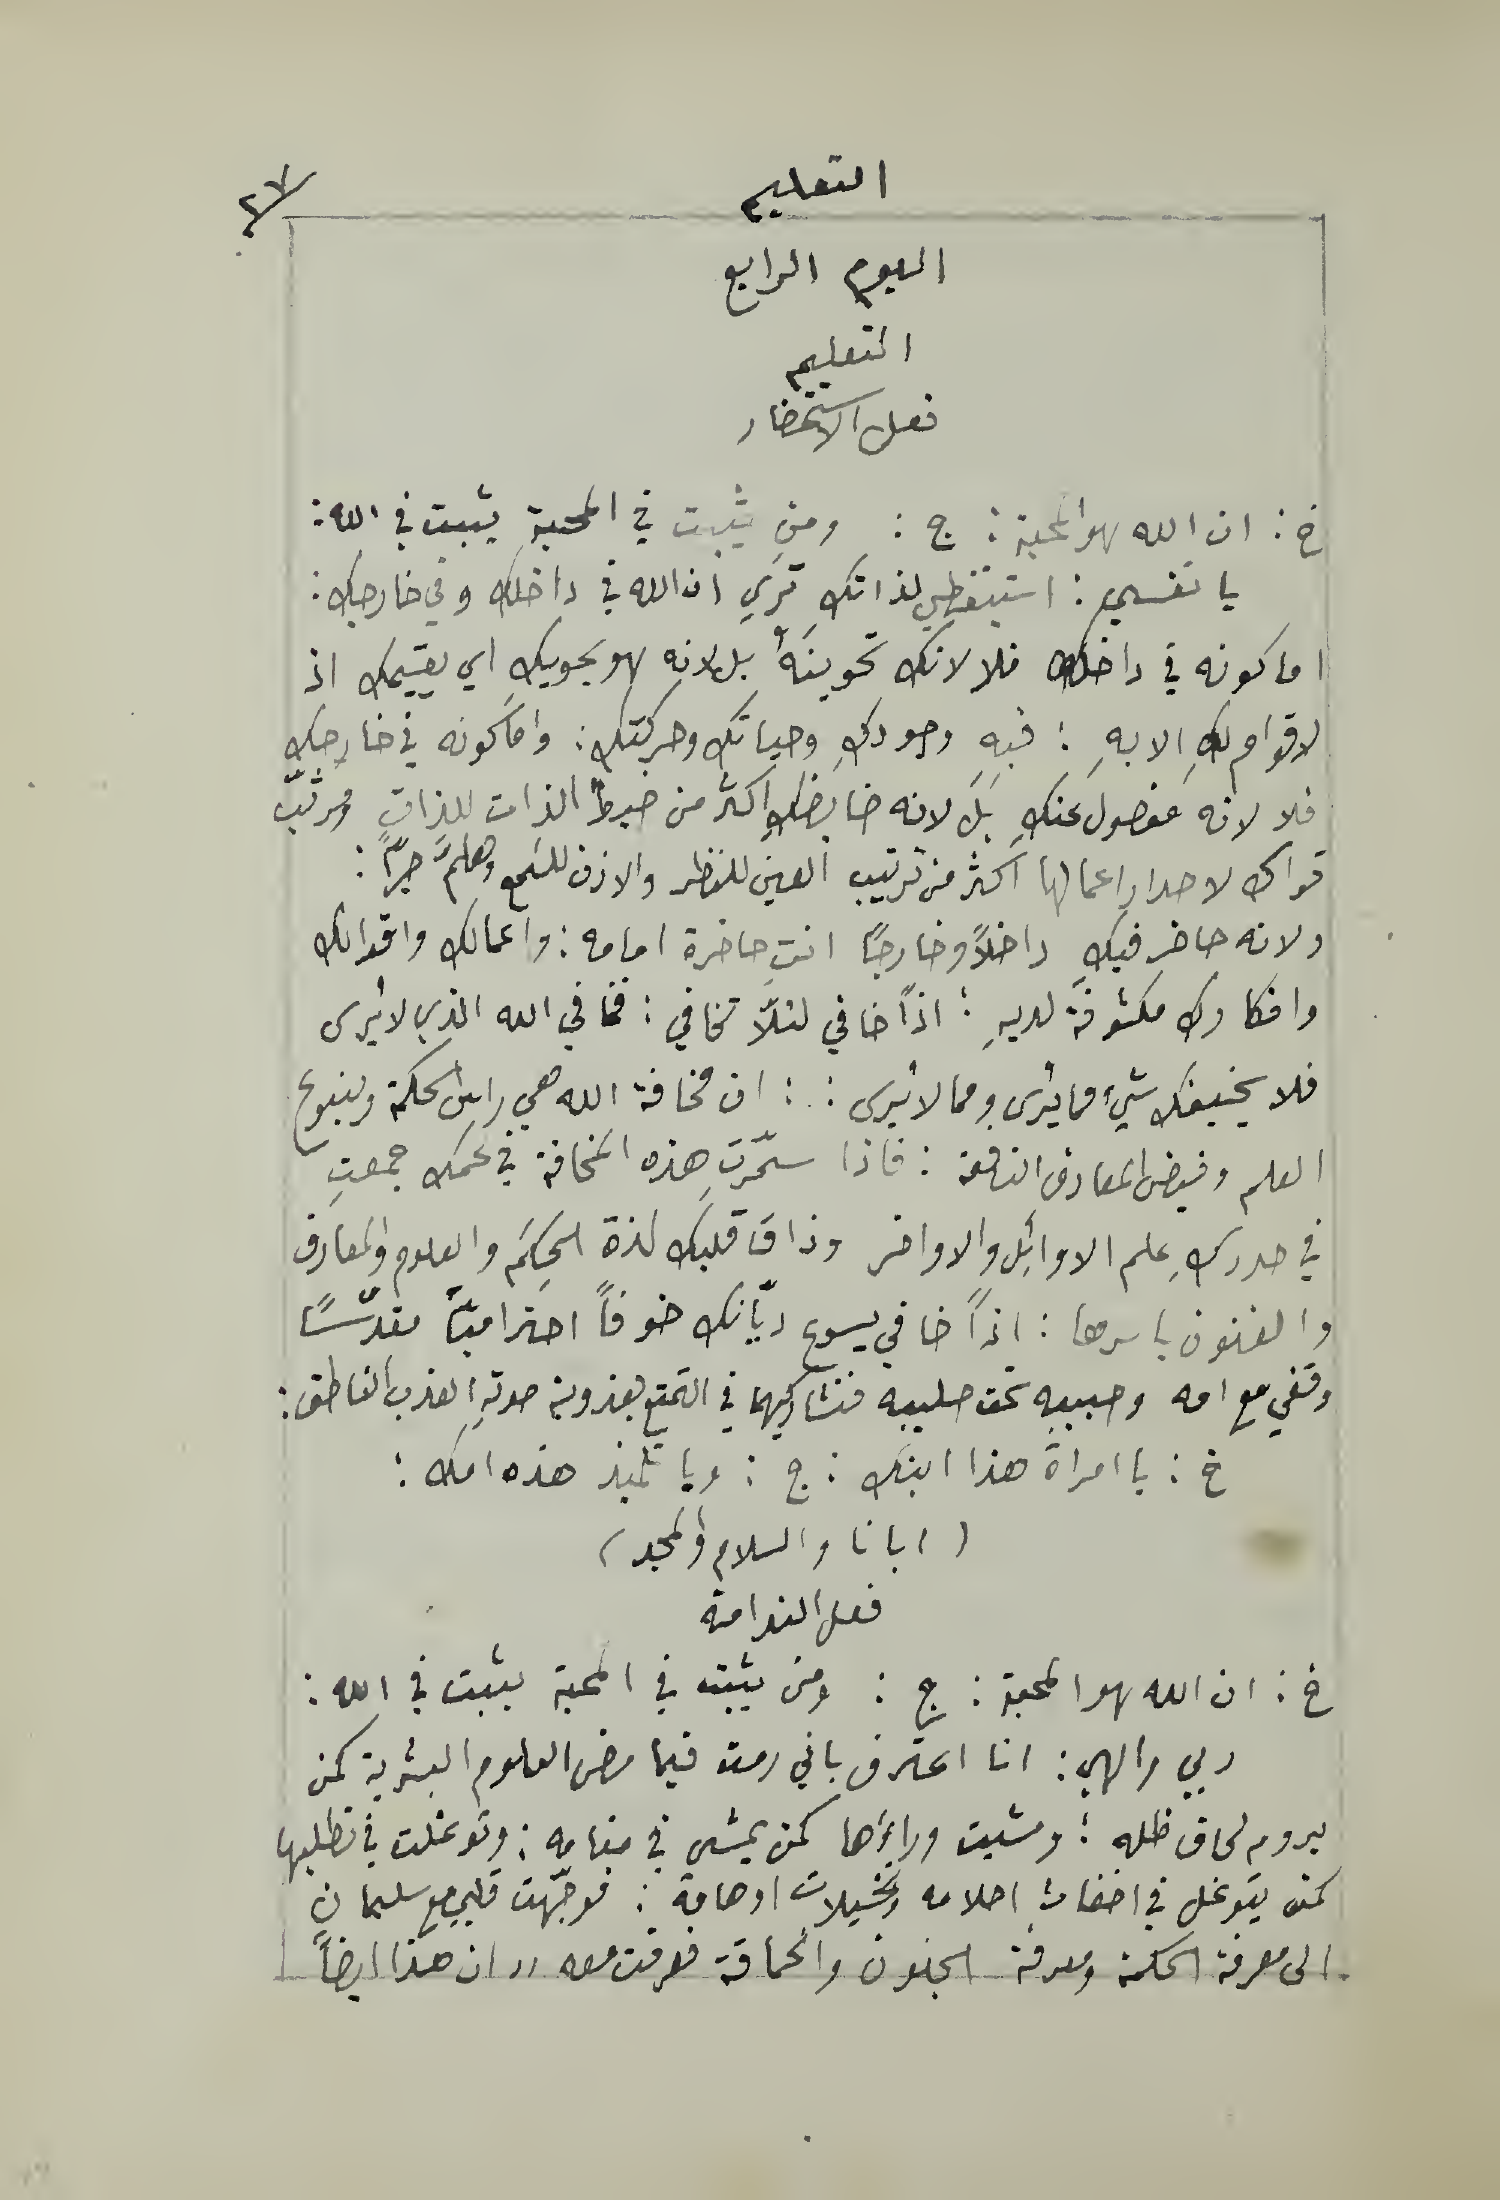 التعليم
٢٧
اليوم الرابع
التعليم
فعل الاستحضار
خ : ان الله هو المحبة : ج : ومن يثبت في المحبة يثبت في الله :
يا نفسي : استيقظي لذاتكِ تَرَيِ ان الله في داخلك وفي خارجك :
اما كونه في داخلك فلا لانك تحوينَهُ بل لانه هو يحويكِ اي يقيمك اذ
لا قوام لكِ الا بهِ : فبهِ وجودكِ وحياتكِ وحركتك : واما كونه في خارجك
فلا لانه مفصول عنكِ بَل لانه ضابطكِ اكثر من ضبط الذات للذات ومرتّب
قواكِ لاصدار اعمالها اكثر من ترتيب العين للنظر والاذن للسمع وهلمَّ جرّاً :
ولانه حاضر فيكِ داخلاً وخارجًا انتِ حاضرة امامه : واعمالك واقوالك
وافكارك مكشوفة لديهِ : اذاً خافي لئلّا تخافي : خافي الله الذي لا يُرى
فلا يخيفك شيءٌ مما يُرى ومما لا يُرى : : ان مخافة الله هي راس الحكمة وينبوع
العلم وفيض المعارف النافعة : فاذا سمّرتِ هذه المخافة في لحمك جمعتِ
في صدركِ علم الاوائل والاواخر وذاق قلبك لذة الحِكَم والعلوم والمعارف
والفنون باسرها : اذاً خافي يسوع ديّانك خوفاً احتراميّاً مقدّسًا
وقفي مع امه وحبيبه تحت صليبه فتشاركيهما في التمتع بعذوبة صوتهِ العذب الناطق :
خ : يا امراة هذا ابنك : ج : ويا تلميذ هذه امك :
( ابانا والسلام والمجد )
فعل الندامة
خ : ان الله هو المحبة : ج : ومن يثبت في المحبة يثبت في الله :
ربي والهي : انا اعترف باني رمت فيما مضى العلوم البشرية كمن
يروم لحاق ظله : ومشيت وراءها كمن يمشي في منامه : وتوغلت في تطلبها
كمن يتوغل في اضغاث احلامه وتخيلات اوهامه : فوجّهت قلبي مع سليمان
الى معرفة الحكمة ومعرفة الجنون والحماقة فعرفت معه ,, ان هذا ايضاً